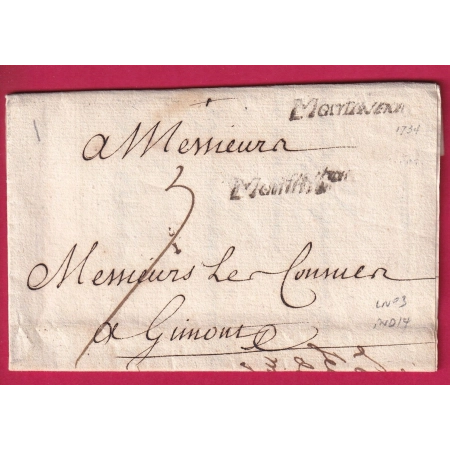 Montauban
1734
a Messieurs
Montauban
5
Messieurs les Consules
a Gimont
LN°3
IND 14